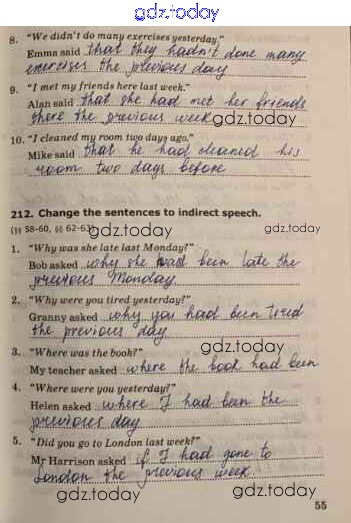 gdz.today
8. "We didn't do many exercises yesterday."
Emma said that they hadn't done many
exercises the previous day
9. "I met my friends here last week."
Alan said that she had met her friends
there the previous week gdz.today
10. "I cleaned my room two days ago."
Mike said that he had cleaned his
room two days before
212. Change the sentences to indirect speech.
(§§ 58-60, §§ 62-63) gdz.today gdz.today
1. "Why was she late last Monday?"
Bob asked why she had been late the
previous Monday
2. "Why were you tired yesterday?"
Granny asked why you had been tired
the previous day gdz.today
3. "Where was the book?"
gdz.today
My teacher asked where the book had been
4. "Where were you yesterday?"
Helen asked where I had been the
previous day
5. "Did you go to London last week?"
Mr Harrison asked if I had gone to
London the previous week
55
gdz.today gdz.today